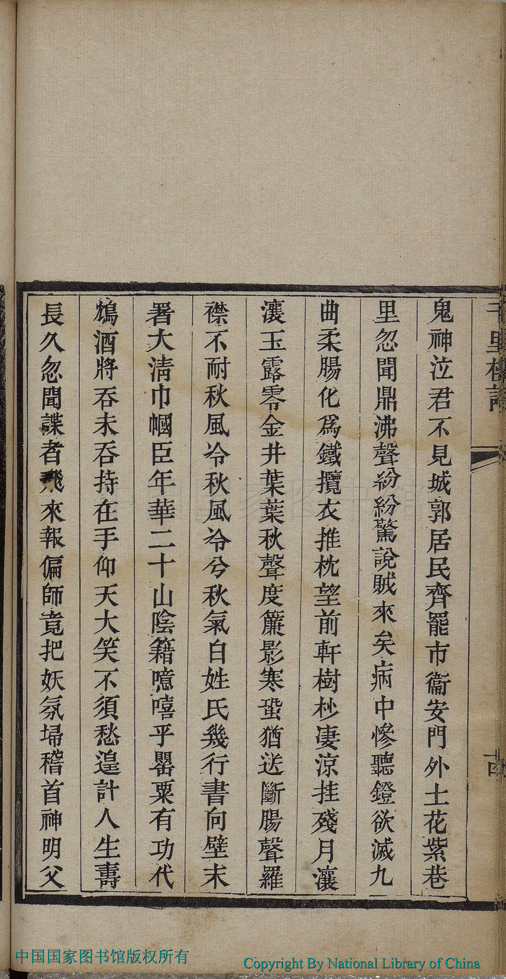 千里樓詩
鬼神泣君不見城郭居民齊罷市衞安門外土花紫巷
里忽聞鼎沸聲紛紛驚說賊來矣病中慘聽鐙欲滅九
曲柔腸化爲鐵攬衣推枕望前軒樹杪淒涼挂殘月瀼
瀼玉露零金井葉葉秋聲度簾影寒蛩猶送斷腸聲羅
襟不耐秋風冷秋風冷兮秋氣白姓氏幾行書向壁末
署大淸巾幗臣年華二十山陰籍噫嘻乎罌粟有功代
鴆酒將吞未吞持在手仰天大笑不須愁遑計人生壽
長久忽聞諜者飛來報偏師竟把妖氛埽稽首神明父
中国国家图书馆版权所有
Copyright By National Library of China